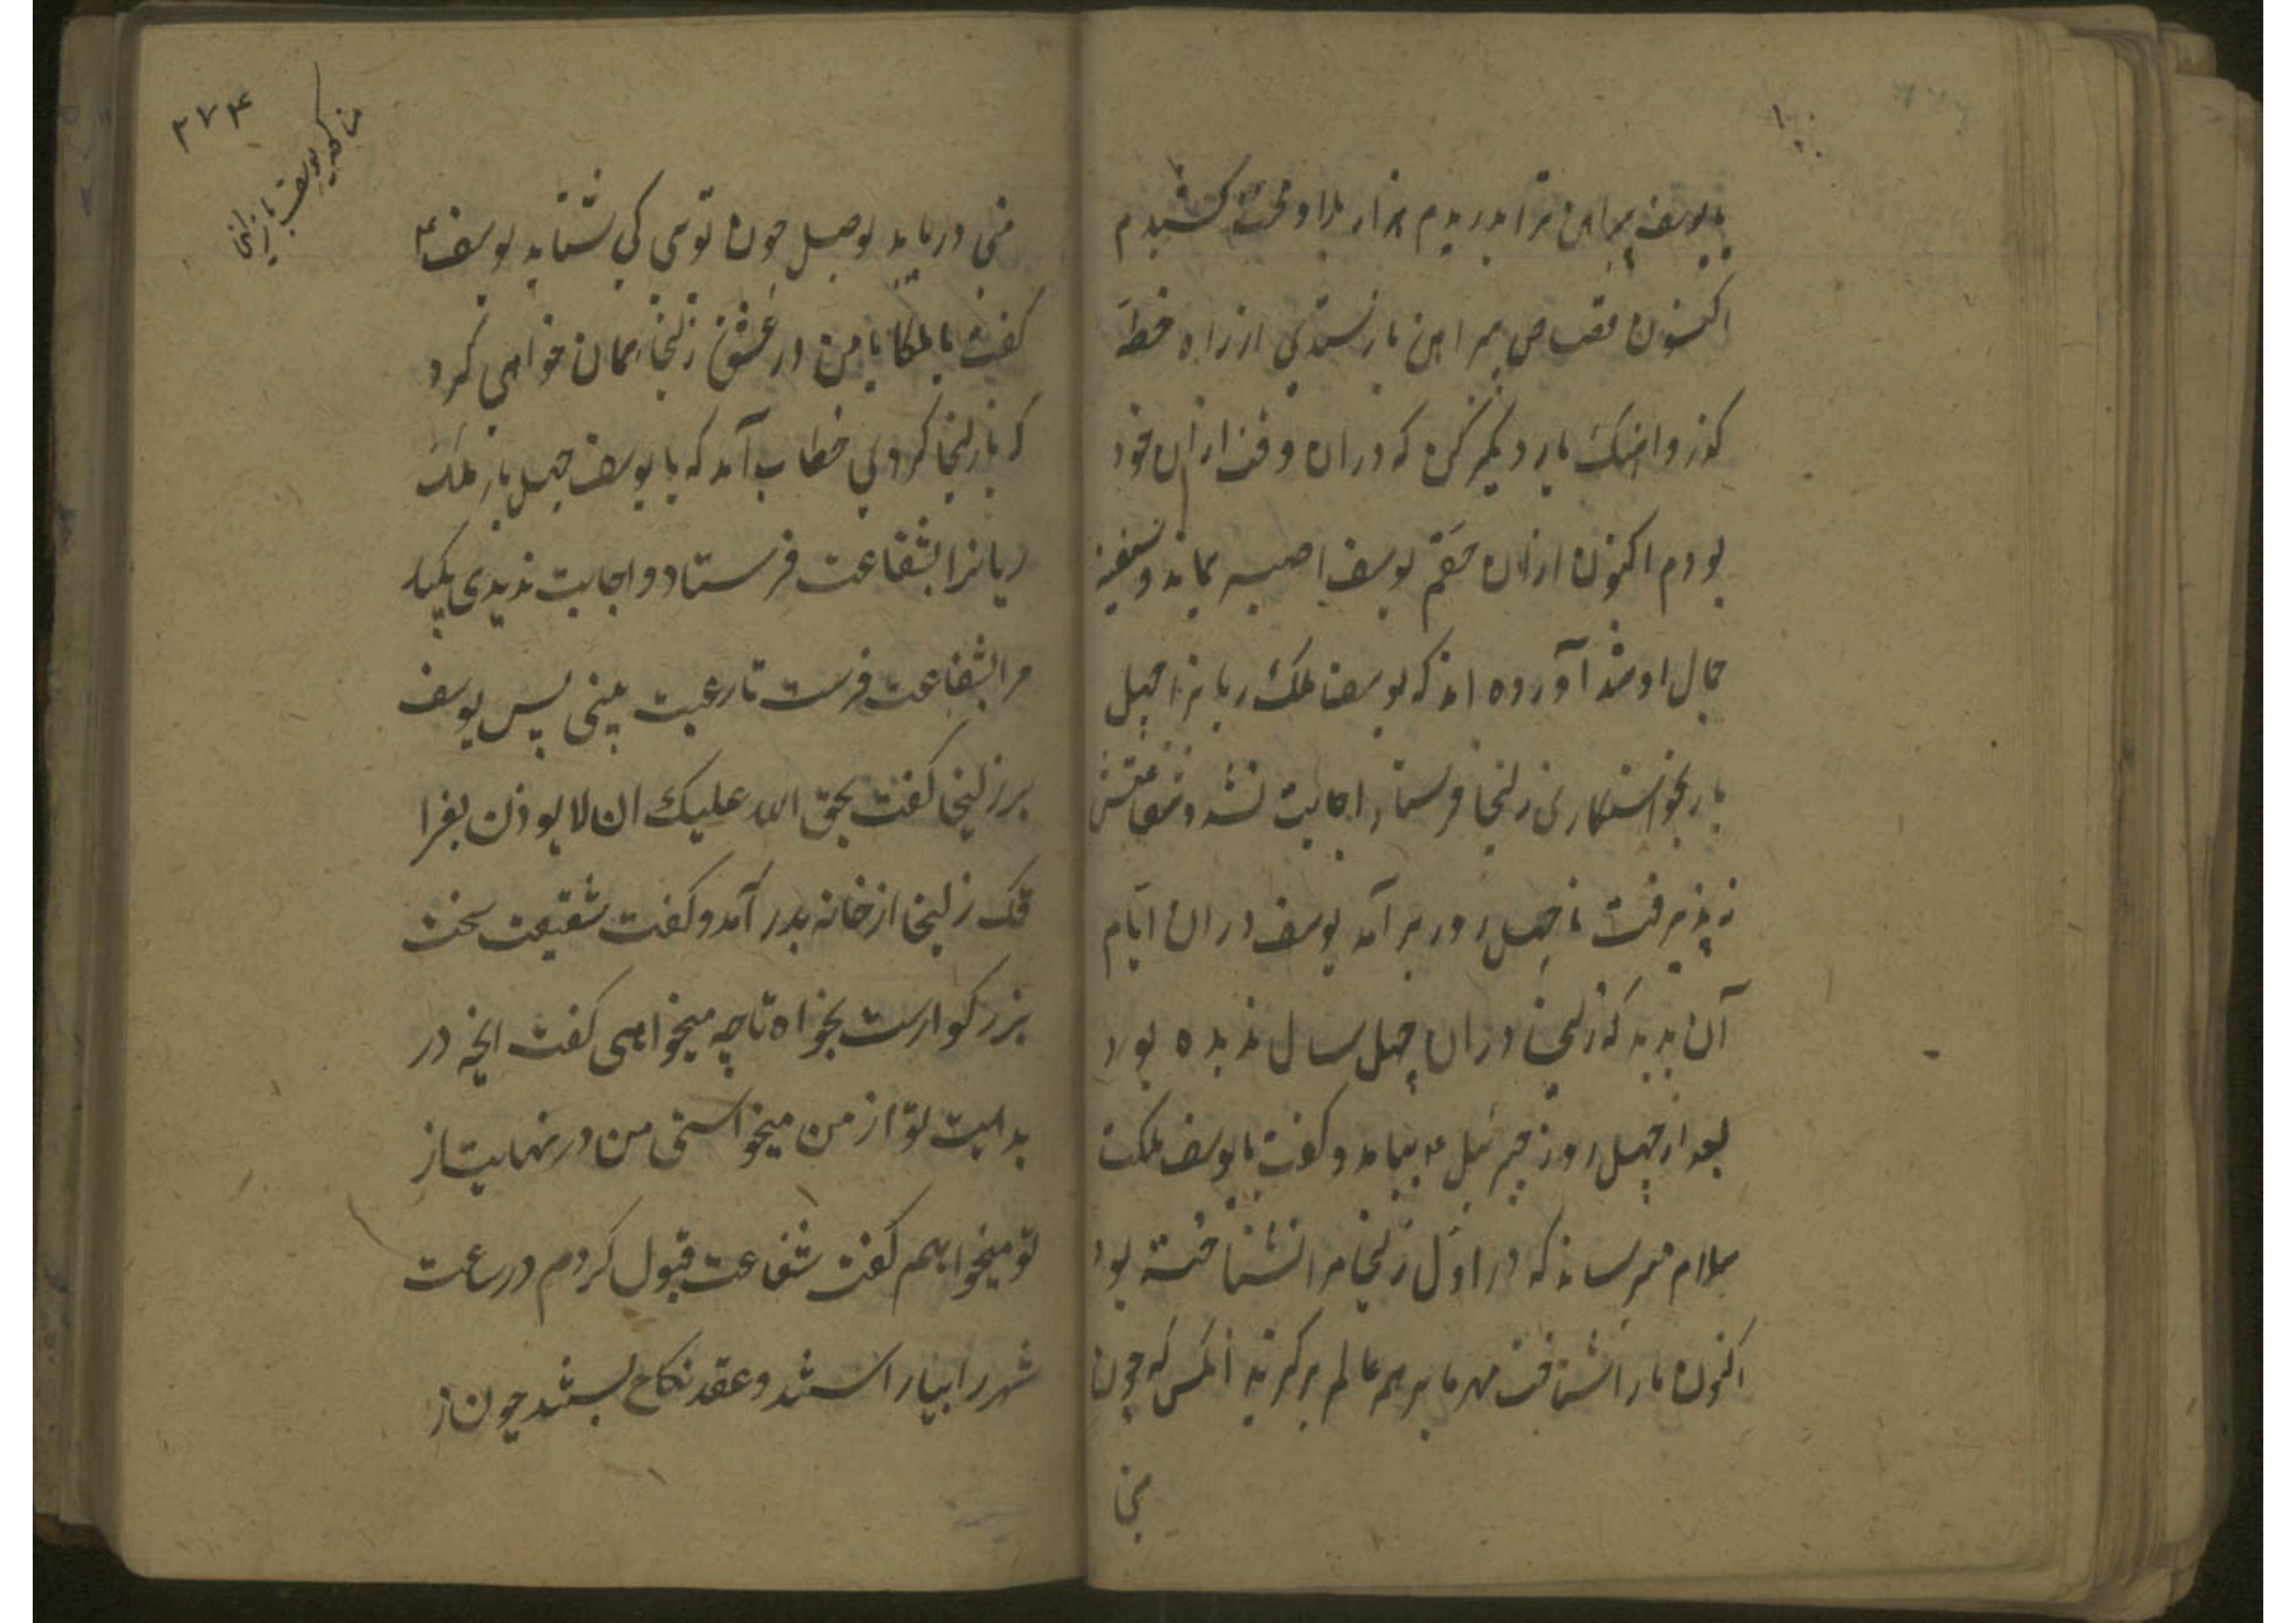 یا یوسف پیراهن ترا بدریدم هزار بلا و محنت کشیدم
اکنون قصاص پیراهن باز ستدی از راه خطا
کذر و اینک بار دیگر که دران وقت ازان خود
بودم اکنون ازان حقم یوسف بماند و شیفته
جمال او شد آورده اند که یوسف ملک ریانرا چهل
بار بخواستکاری زلیخا فرستاد اجابت نشد و شفاعتش
نه پذیرفت تا چهل روز برآمد یوسف دران ایّام
آن بدید که زلیخا دران چهل سال ندیده بود
بعد از چهل روز جبرئیل ۴ بیامد و کفت یا یوسف ملکت
سلام میرساند که در اوّل زلیخا مرا نشناخته بود
اکنون مارا شناخت مهر ما بر همه عالم برکزید آنکس که چون
منی
۲۷۴
مناکحه یوسف با زلیخا
منی دریابد بوصل چون توئی کی شتابد یوسف ۴
کفت یا ملکا با من در عشق زلیخا همان خواهی کرد
که با زلیخا کردی خطاب آمد که یا یوسف چهل بار ملک
ریانرا بشفاعت فرستاد و اجابت ندیدی یکبار
مرا بشفاعت فرست تا رغبت بینی پس یوسف
برزلیخا کفت بحق الله علیک ان لا یوذن بفرا
قک زلیخا از خانه بدر آمد و کفت شفیعت سخت
بزرکوارست بخواه تا چه میخواهی کفت انچه در
بدایت تو از من میخواستی من در نهایت از
تو میخواهم کفت شفاعت قبول کردم در ساعت
شهر را بیاراستند و عقد نکاح بستند چون از